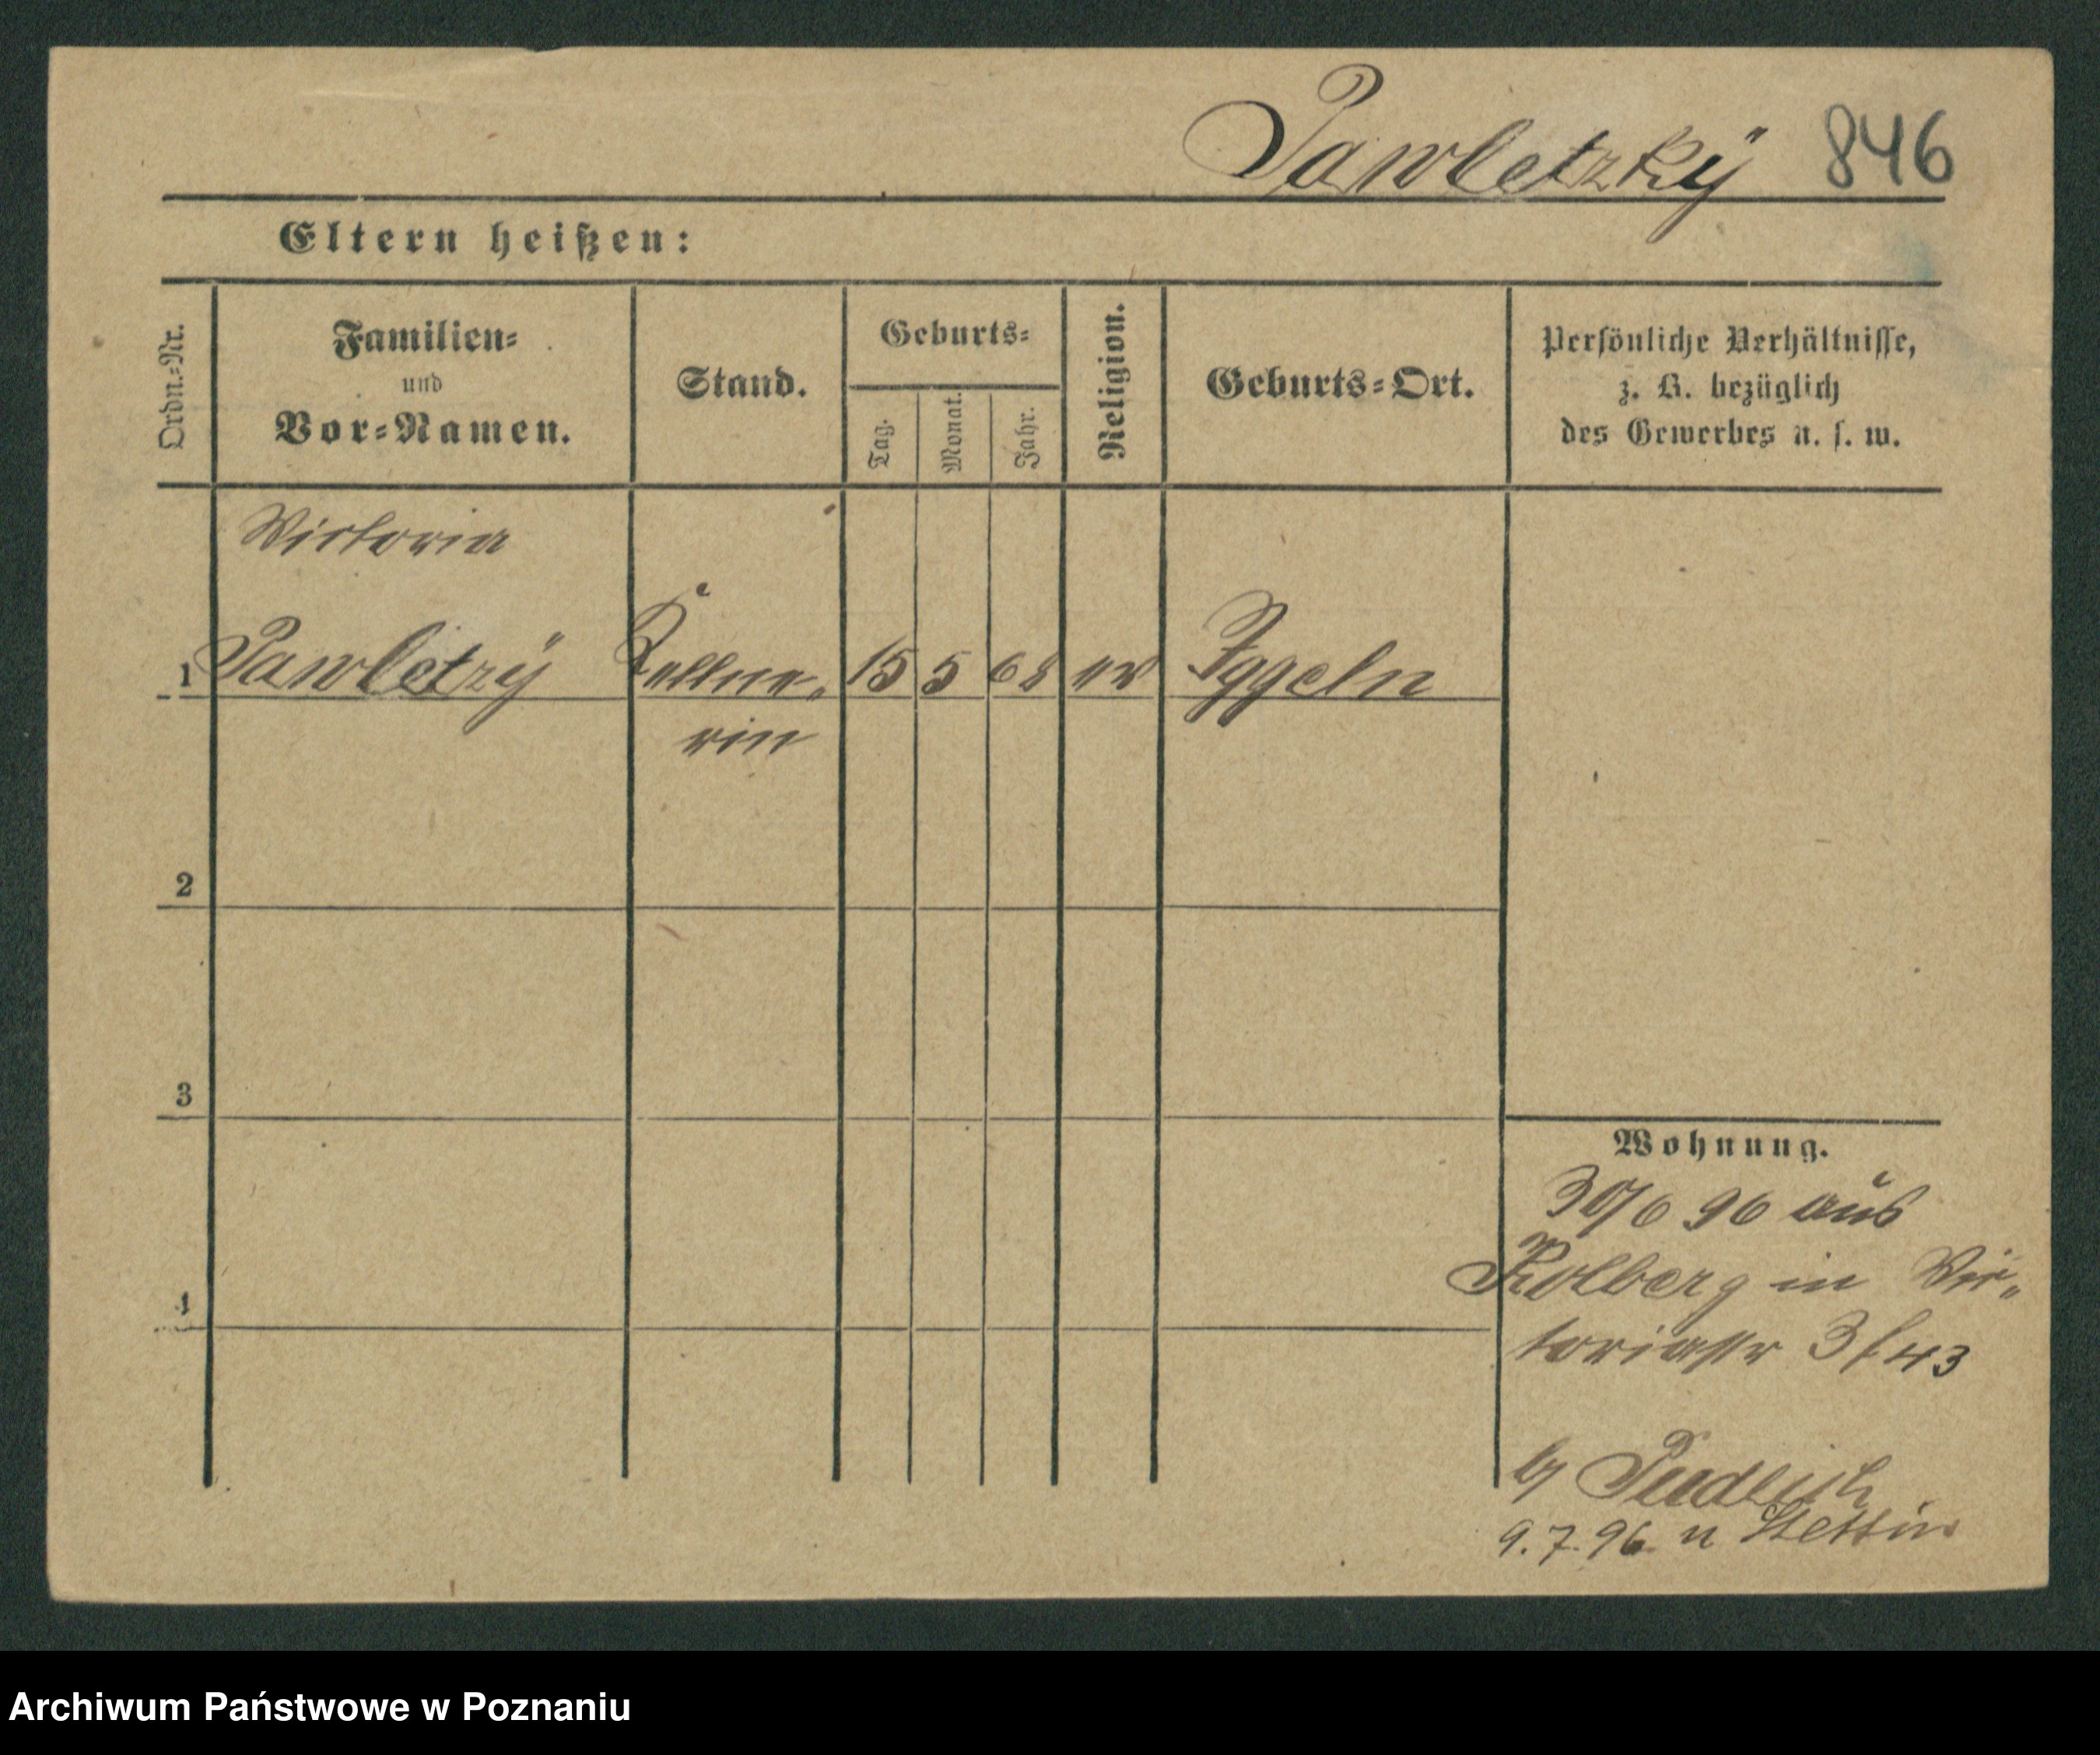 Pawletzkÿ 846
Eltern heißen:
Ordn.=Nr.
Familien=
und
Vor=Namen.
Stand.
Geburts=
Tag.
Monat.
Jahr.
Religion.
Geburts=Ort.
Persönliche Verhältnisse,
z. B. bezüglich
des Gewerbes u. s. w.
Victoria
1 Pawletzÿ Kellne„ 15 5 68 ev Iggeln
rin
2
3
4
Wohnung.
30/6 96 aus
Kolberg in Vic„
toriastr 3/43
b/
9.7.96 n Stettin
Archiwum Państwowe w Poznaniu